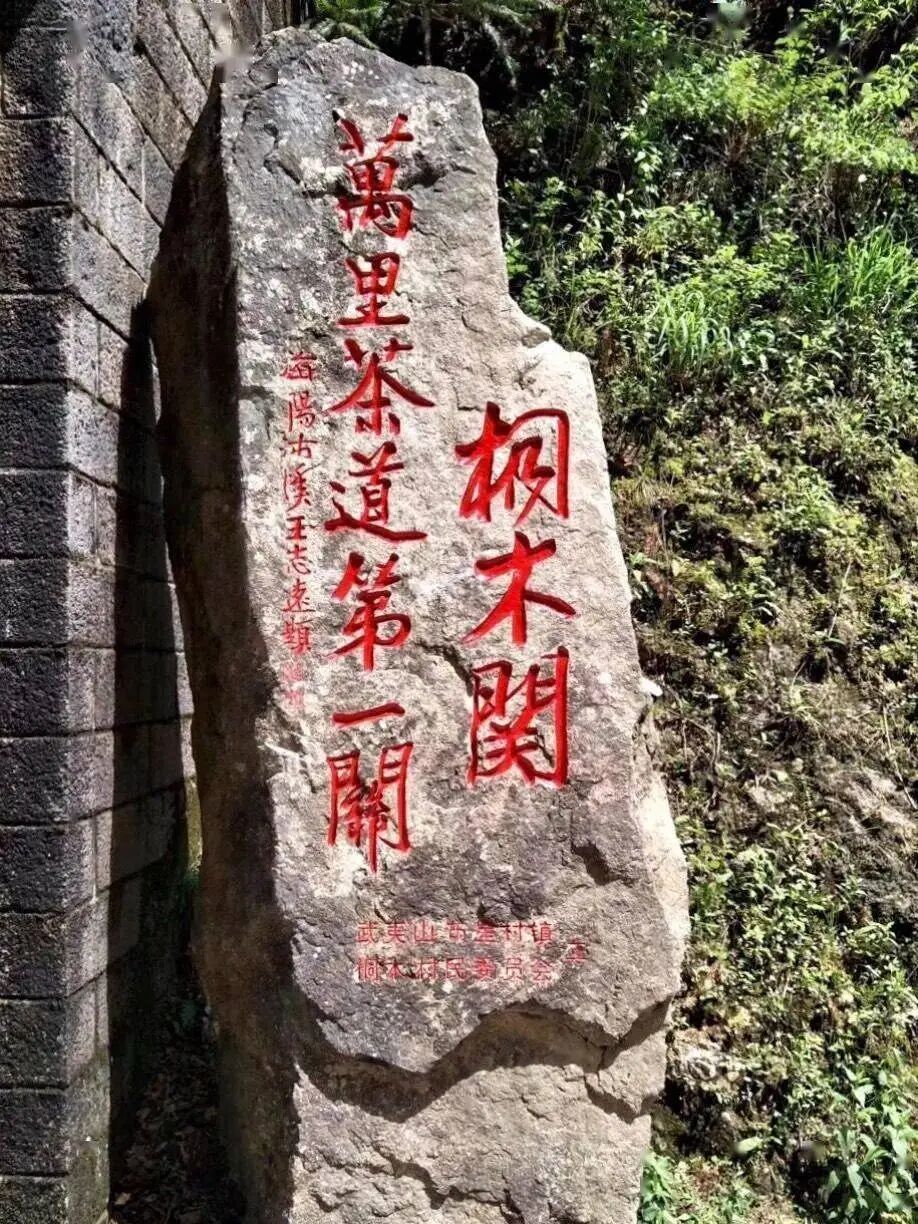 桐木関
萬里茶道第一關
陽 溪王志遠題
武夷山市星村镇
桐木村民委员会 立